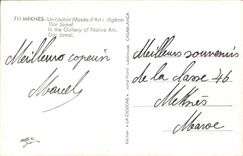 711 MEKNES - Un couloir (Musée d'Art indigène)
Dar Jamaï
In the Gallery of Native Art.
Day Jamaï.
Meilleurs copains
Marcel
Meilleurs souvenirs
de la classe 46
Meknès
Maroc
LA CIGOGNE
CASABLANCA